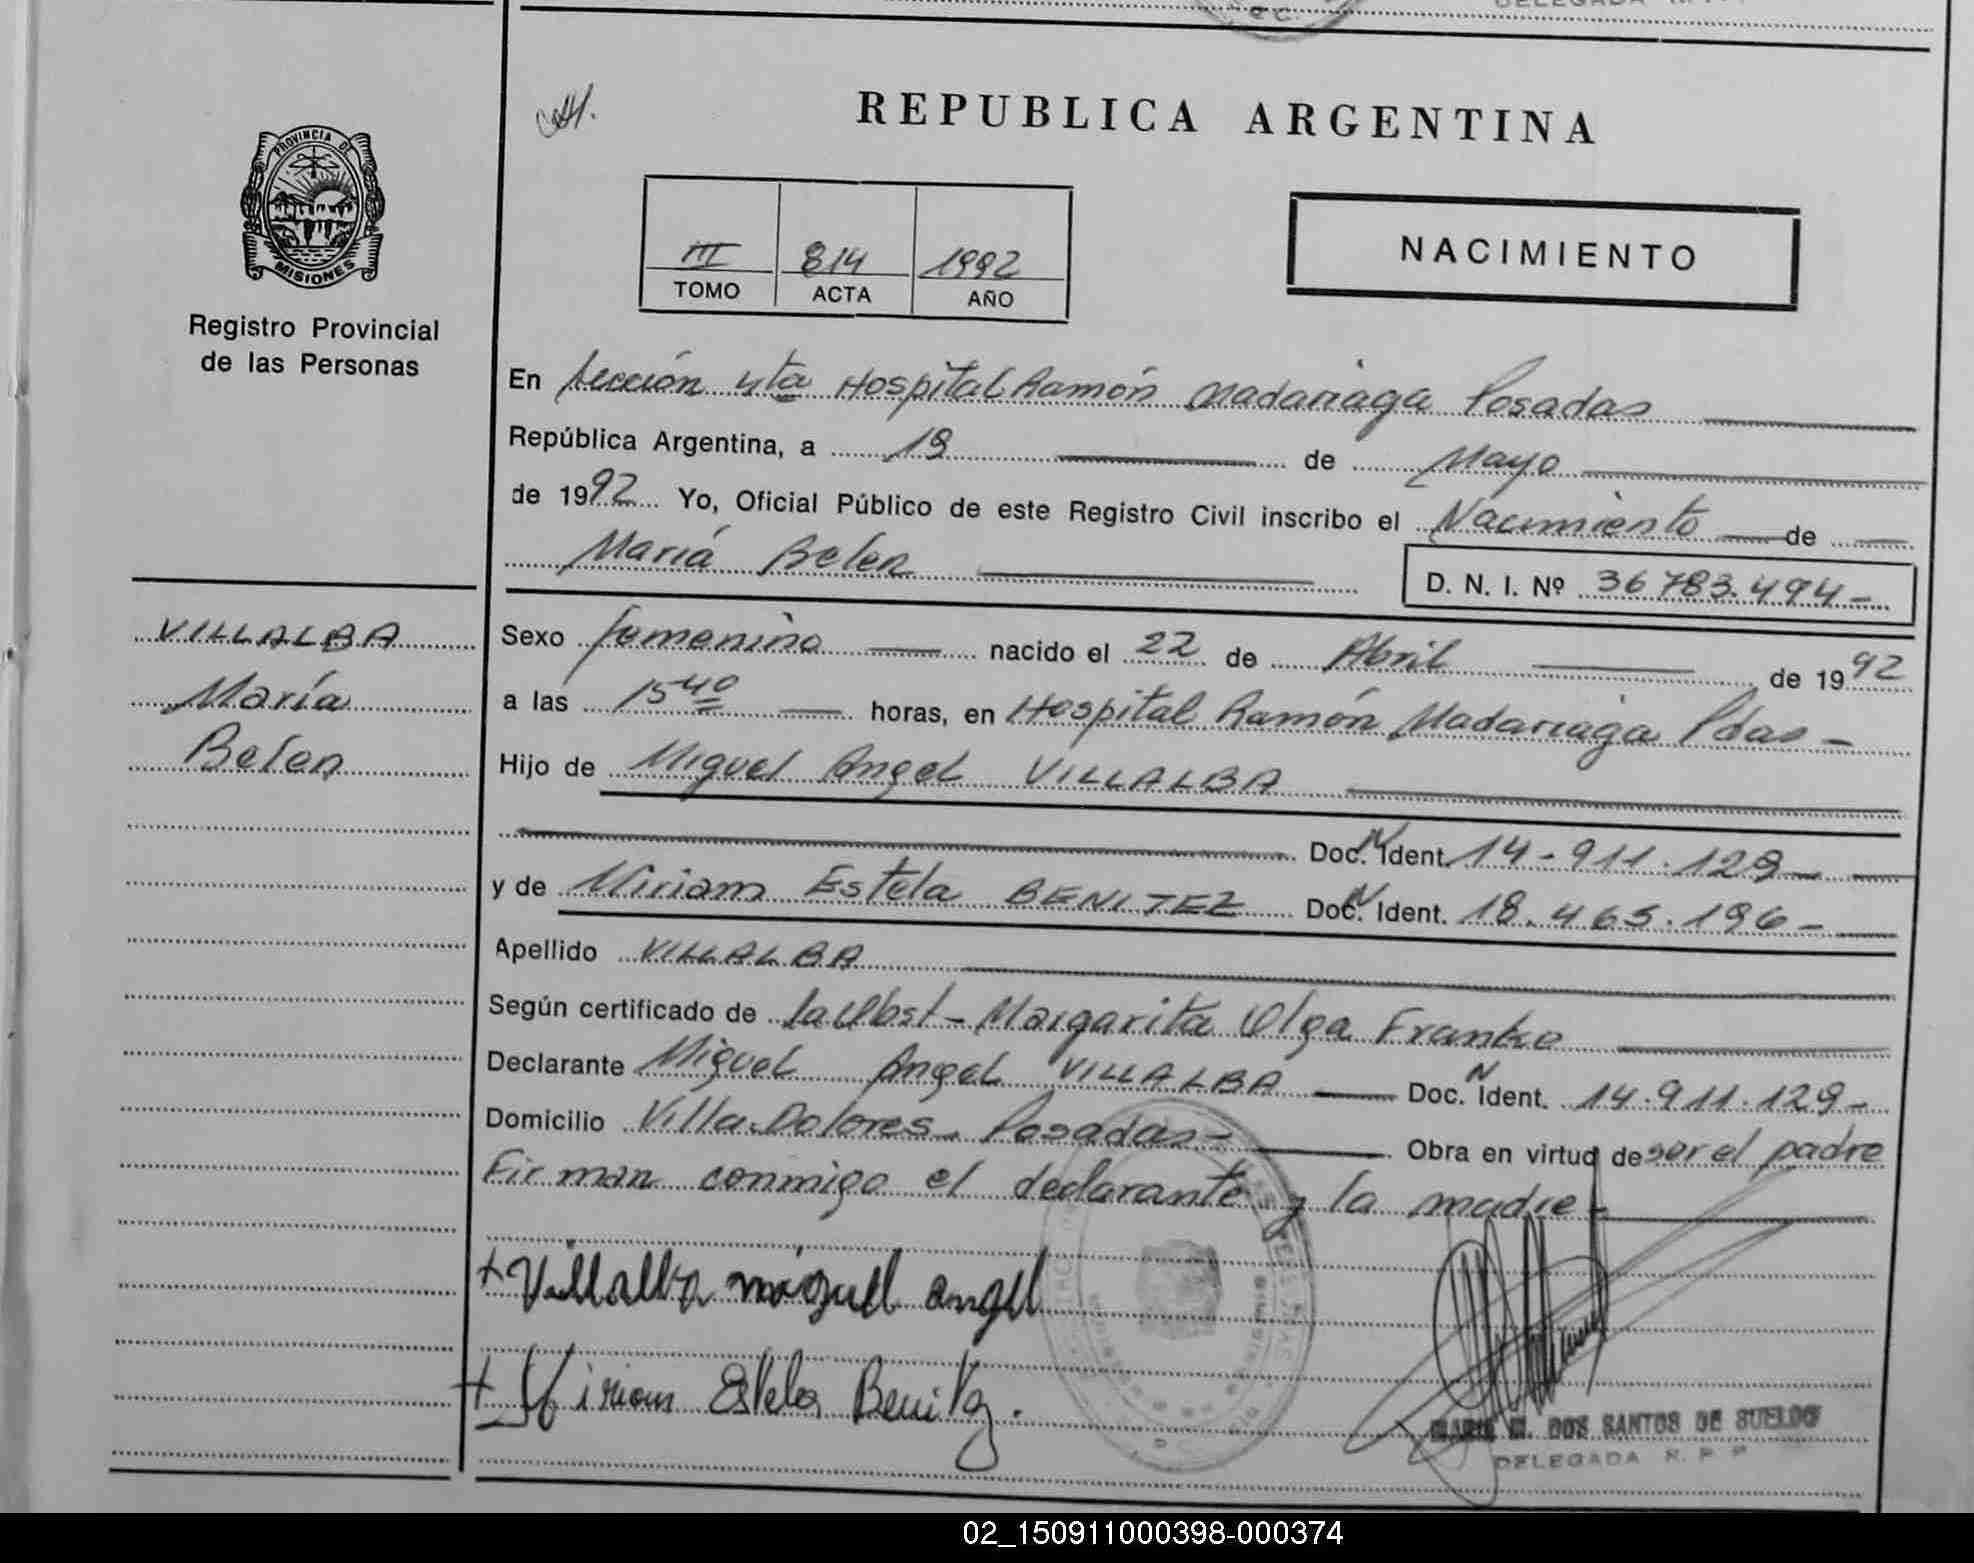 REPUBLICA ARGENTINA
PROVINCIA DE
MISIONES
Registro Provincial
de las Personas
III 814 1992
TOMO ACTA AÑO
NACIMIENTO
En Sección 4ta Hospital Ramón Madariaga Posadas
República Argentina, a 19 de Mayo
de 1992 Yo, Oficial Público de este Registro Civil inscribo el Nacimiento de
María Belen D. N. I. Nº 36783.494-
VILLALBA
María
Belen
Sexo femenino nacido el 22 de Abril de 1992
a las 15 40 horas, en Hospital Ramón Madariaga Pdas-
Hijo de Miguel Angel VILLALBA
Doc. N Ident. 14-911.129-
y de Miriam Estela BENITEZ Doc. N Ident. 18.465.196-
Apellido VILLALBA
Según certificado de la Obst- Margarita Olga Franko
Declarante Miguel Angel VILLALBA Doc. N Ident. 14.911.129-
Domicilio Villa Dolores- Posadas- Obra en virtud de ser el padre
Firman conmigo el declarante y la madre-
+ Villalba miguel angel
+ Miriam Estela Benitez.
MARIA M. DOS SANTOS DE SUELDO
DELEGADA R. P. P
02_150911000398-000374